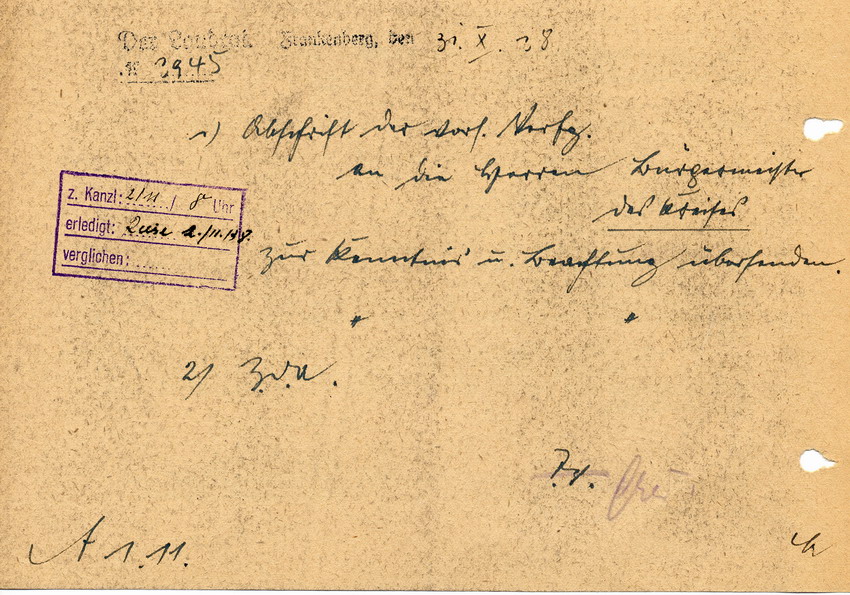 Der Landrat. Frankenberg, den 31. X. 38
A 3945
1) Abschrift der vorst. Verfg.
an die Herren Bürgermeister
des Kreises
z. Kanzl: 2/11. / 8 Uhr
erledigt: 2./11.38.
verglichen:
zur Kenntnis u. Beachtung übersenden.
" "
2) Z.d.A.
A 1.11.